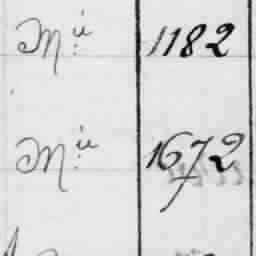 Mᵘ 1182
Mᵘ 1672